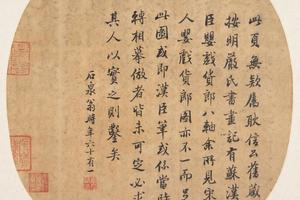 此頁無款舊耿信公舊藏
按明嚴氏書畫記有蘇漢
臣嬰戲貨郎八軸余所見宋
人嬰戲貨郎圖亦不一而足
此圖或即漢臣筆或係當時
轉相摹倣者皆未可定必求
其人以實之則鑿矣
石泉翁時年六十有一